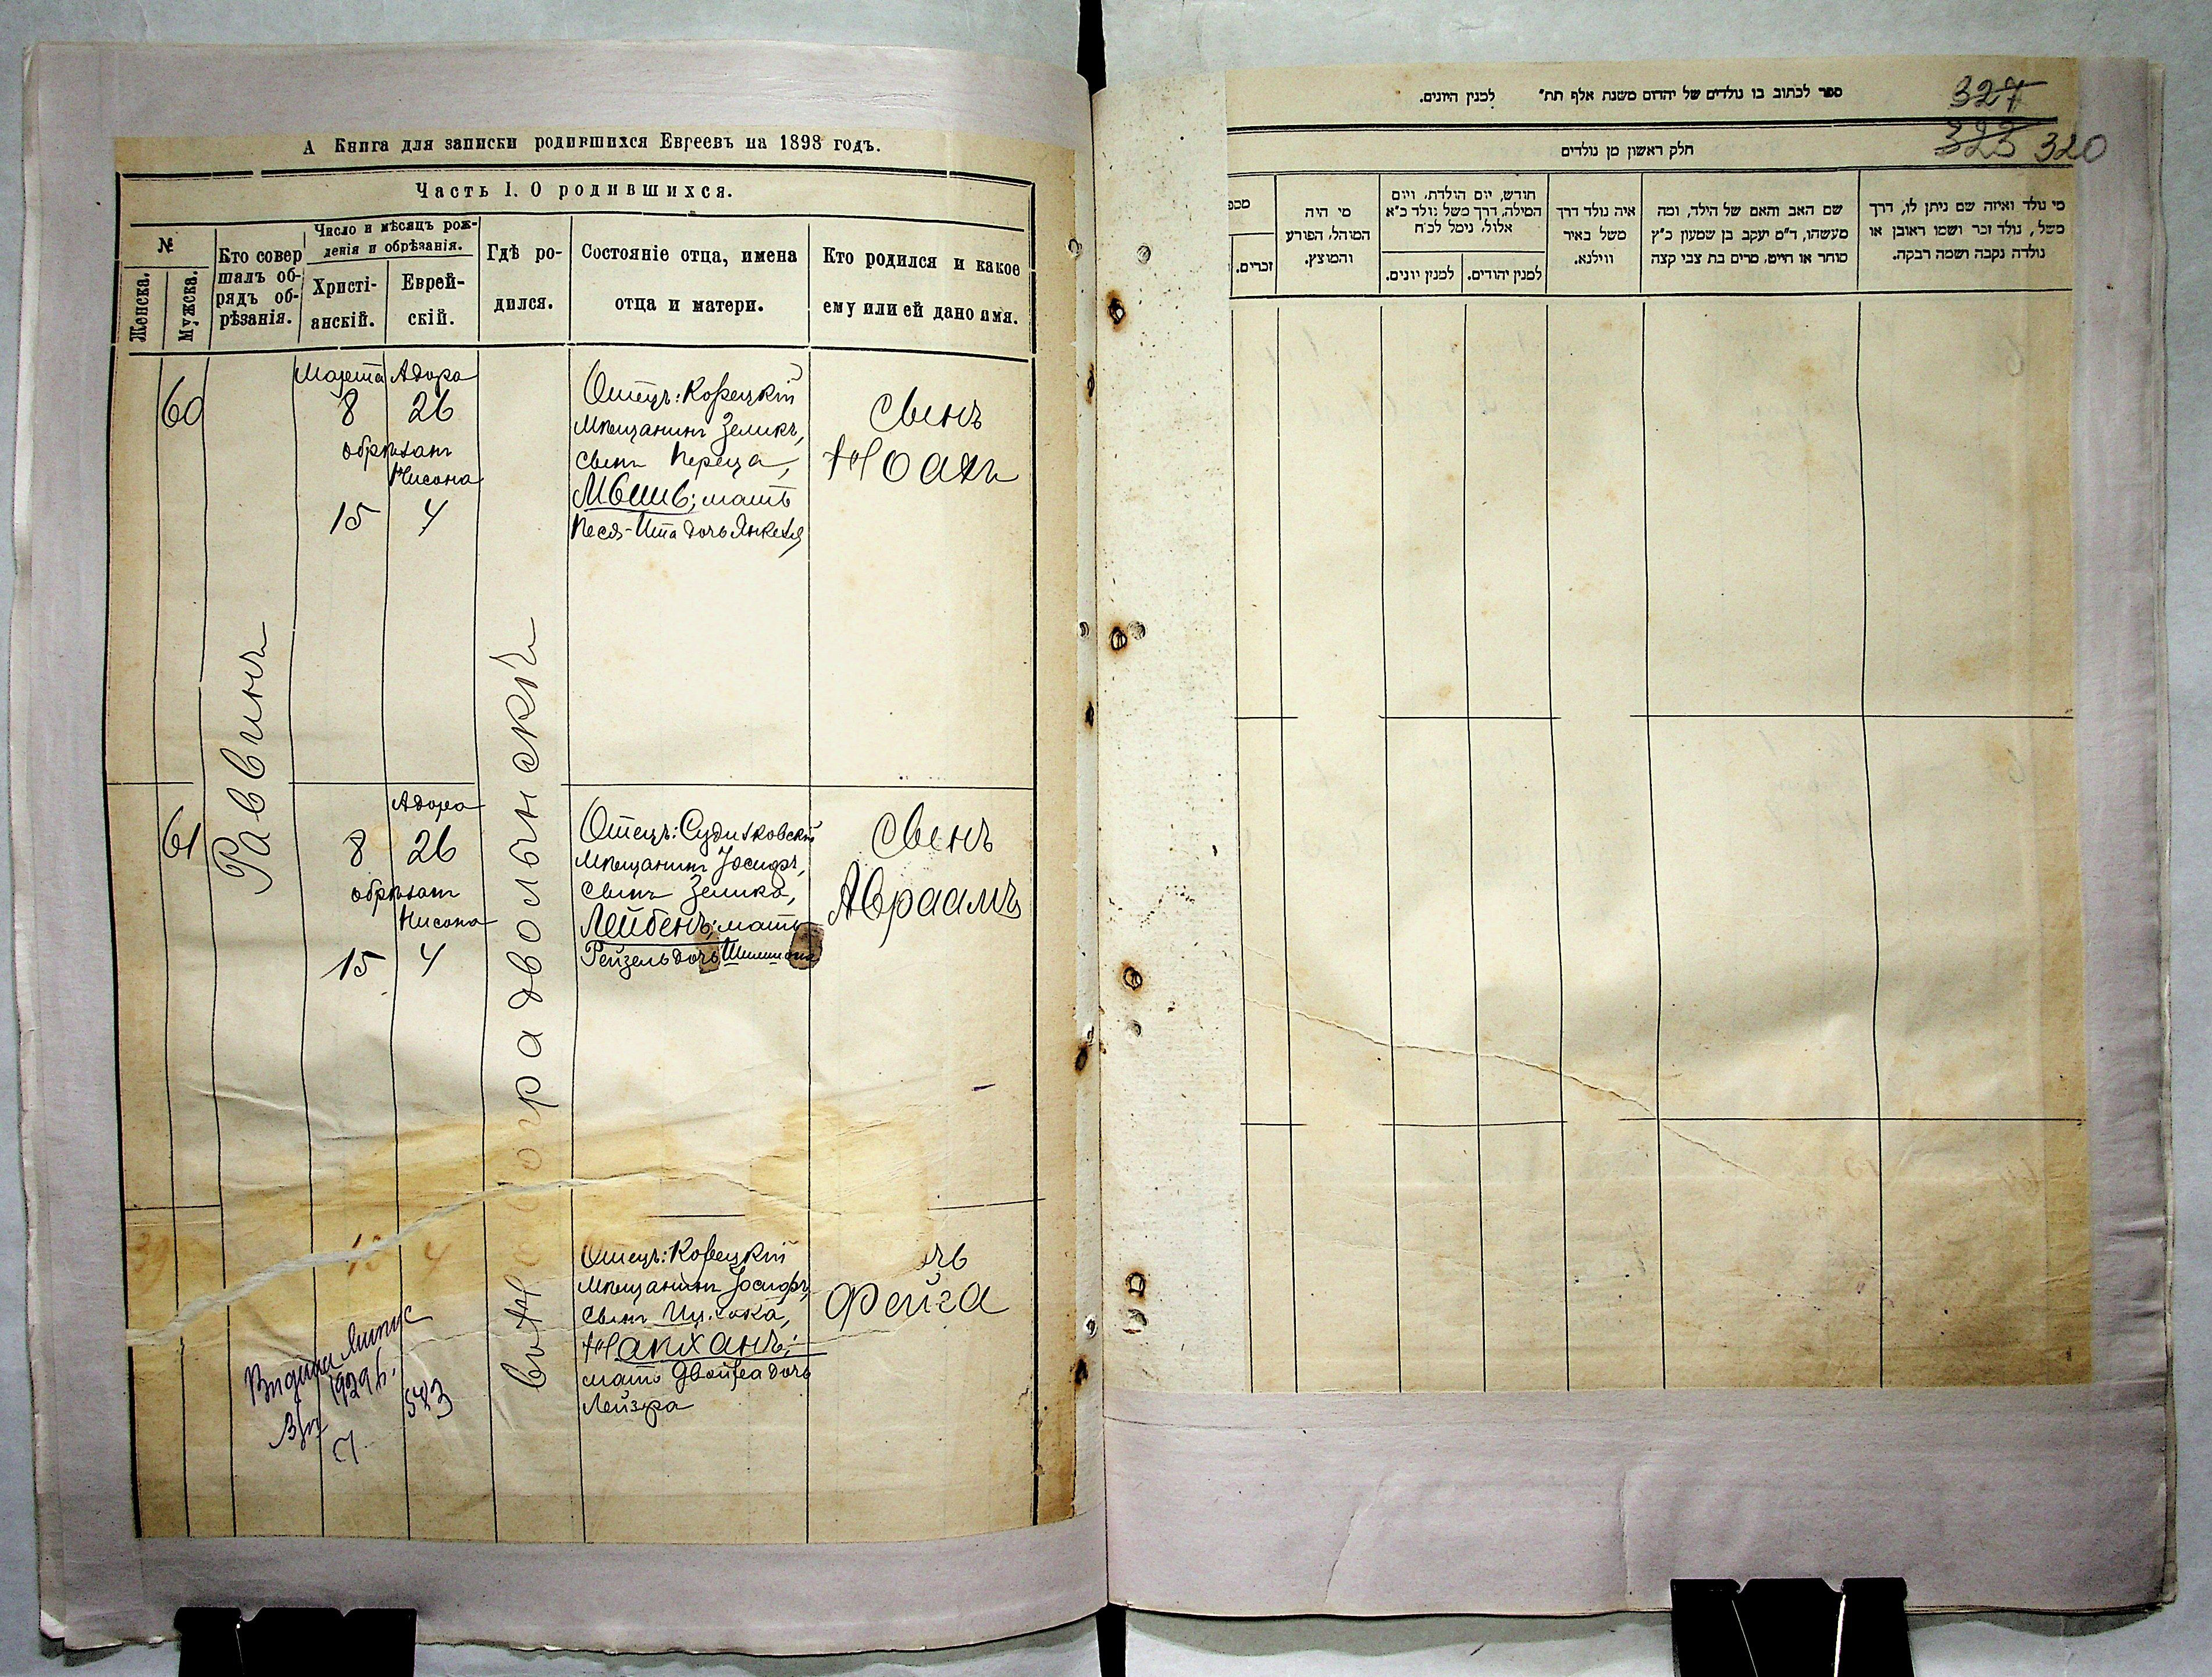 А Книга для записки родившихся Евреевъ на 1898 годъ.
Часть I. О родившихся.
№
Женска.
Мужска.
Кто совер
шалъ об-
рядъ об-
рѣзанія.
Число и мѣсяцъ рож-
денія и обрѣзанія.
Христі-
анскій.
Еврей-
скій.
Гдѣ ро-
дился.
Состояніе отца, имена
отца и матери.
Кто родился и какое
ему или ей дано имя.
60
Раввинъ
Марта
8
обрѣзанъ
15
Адора
26
Нисона
4
въ Новоградволынскѣ
Отецъ: Корецкій
Мѣщанинъ Зеликъ,
сынъ Переца,
Мвшв; мать
Песя-Ита дочь Янкеля
Сынъ
Ноахъ
61
8
обрѣзанъ
15
Адора
26
Нисона
4
Отецъ: Судилковскій
Мѣщанинъ Іосифъ,
сынъ Зелика,
Лейбенъ; мать
Рейзель дочь
Сынъ
Авраамъ
39
15
4
Отецъ: Корецкій
Мѣщанинъ Іосифъ,
сынъ Ицхока,
Напханъ;
мать Двойра дочь
Лейзра
чь
Фейга
1929 р.
543
ספר לכתוב בו נולדים של יהדום משנת אלף תת״ למנין היונים.
327
323 320
חלק ראשון מן נולדים
מי נולד ואיזה שם ניתן לו, דרך
משל, נולד זכר ושמו ראובן או
נולדה נקבה ושמה רבקה.
שם האב והאם של הילד, ומה
מעשהו, ד״מ יעקב בן שמעון כ״ץ
סוחר או חייט, מרים בת צבי קצה
איה נולד דרך
משל באיר
ווילנא.
חודש, יום הולדת, ויום
המילה, דרך משל נולד כ״א
אלול, נימל לכ״ח
למנין יהודים.
למנין יונים.
מי היה
המוהל, הפורע
והמוצץ.
מספ
זכרים.